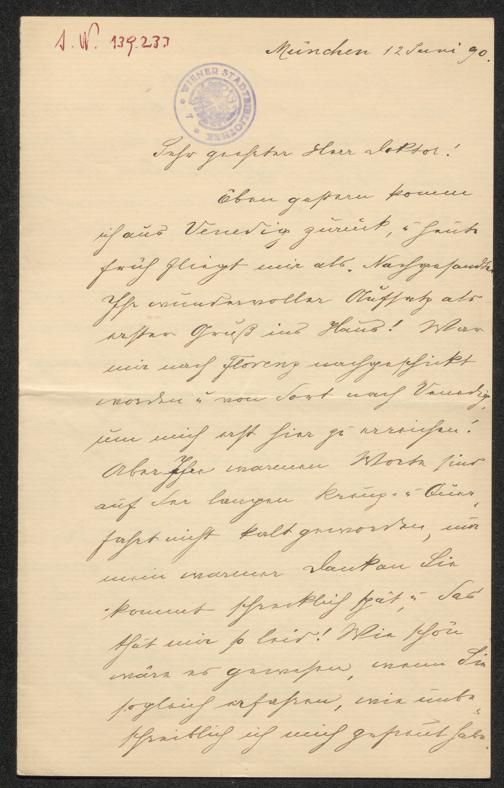 I. N. 139.233
München 12 Juni 90.
WIENER STADTBIBLIOTHEK
Sehr geehrter Herr Doktor!
Eben gestern komm
ich aus Venedig zurück, u heute
früh fliegt mir als Nachgesandtes
Ihr wundervoller Aufsatz als
erster Gruß ins Haus! War
mir nach Florenz nachgeschickt
worden u von dort nach Venedig,
um mich erst hier zu erreichen!
Aber Ihre warmen Worte sind
auf der langen Kreuz- u Quer-
fahrt nicht kalt geworden, nur
mein warmer Dank an Sie
kommt schrecklich spät, u das
thut mir so leid! Wie schön
wäre es gewesen, wenn Sie
sogleich erfahren, wie unbe-
schreiblich ich mich gefreut habe.